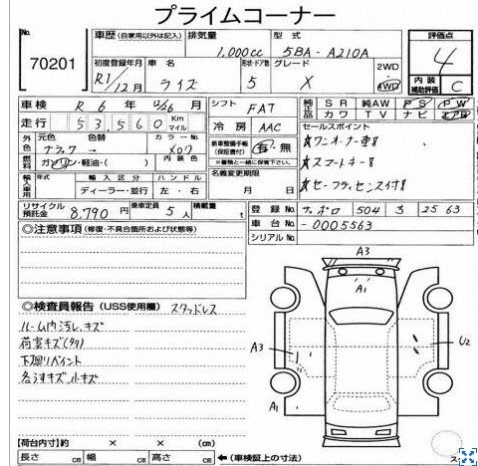 プライムコーナー
No.
70201
車歴 (自家用以外は記入) 排気量 型式
1,000cc 5BA-A210A
評価点
4
初度登録年月 車名 形状・ドア数 グレード 2WD
R1/12月 ライズ 5 X 4WD
内装 補助評価 C
車検 R 6年 12/26月 シフト FAT
SR 純AW PS PW
カワ TV ナビ エアB
走行 53,560 Km マイル
冷房 AAC
セールスポイント
外色 元色 色替 カラーNo.
ブラック → X07
新車整備手帳 (保証書付) 有・無
※書類と一緒に保管下さい。
★ワンオーナー車!!
燃料 ガソリン・軽油・( ) 内装色
★スマートキー!!
輸入車用 年式 輸入区分 ハンドル
名義変更期限
ディーラー・並行 左・右
月 日
リサイクル預託金 8,790円 乗車定員 5人 積載量 t
登録No. サッポロ 504 2563
車台No. -0005563
シリアルNo.
◎注意事項 (修復・不具合箇所および状態等)
◎検査員報告 (USS使用欄) スタッドレス
ルーム内汚レ、キズ
荷室キズ(多数)
下廻リペイント
各うすキズ、小キズ
A3
A1
A3
U2
A1
【荷台内寸】約 × × (cm)
長さ cm 幅 cm 高さ cm ←(車検証上の寸法)
ス